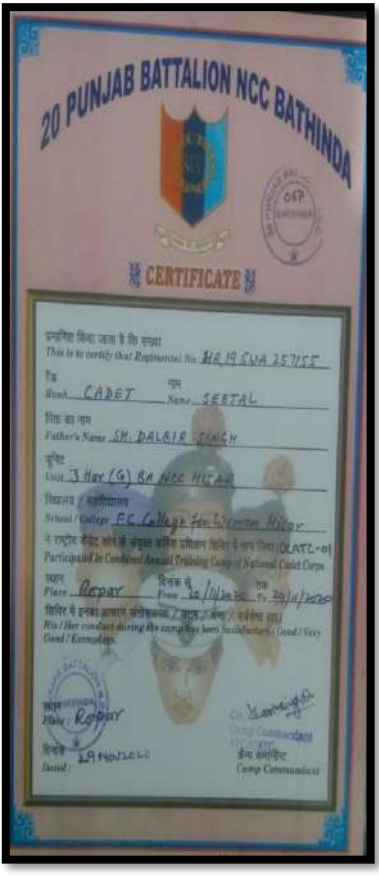 20 PUNJAB BATTALION NCC BATHINDA
NCC
067
BATHINDA
CERTIFICATE
प्रमाणित किया जाता है कि संख्या
This is to certify that Regimental No. HR 19 SWA 257155
रैंक नाम
Rank CADET Name SEETAL
पिता का नाम
Father's Name SH. DALBIR SINGH
यूनिट
Unit 3 Har (G) BN NCC HISAR
विद्यालय / महाविद्यालय
School / College F.C College For Women Hisar
ने राष्ट्रीय कैडेट कोर के संयुक्त वार्षिक प्रशिक्षण शिविर में भाग लिया (DCATC-01
Participated in Combined Annual Training Camp of National Cadet Corps
स्थान दिनांक से तक
Place Ropar From 20/11/2020 To 29/11/2020
शिविर में इनका आचरण संतोषजनक / उत्तम / रहा।
His / Her conduct during the camp has been Satisfactory / Good / Very
Good / Exemplary.
स्थान
Place : Ropar
Camp Commandant
दिनांक
Dated : 29 Nov 2020
कैम्प कमांडेंट
Camp Commandant